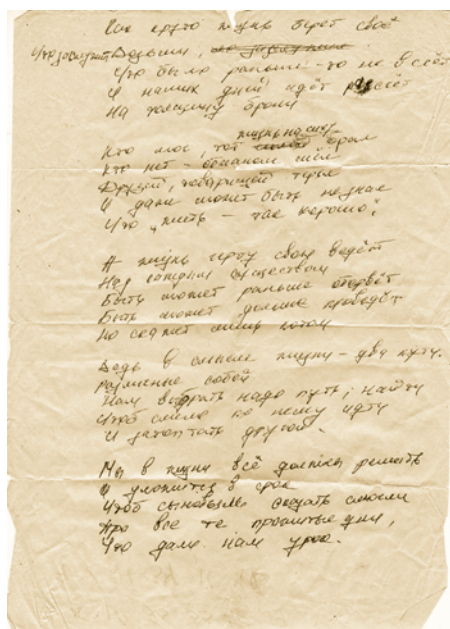 Как круто жизнь берёт своё
Что заслужил
Что было раньше – то не в счёт
И наших дней идёт
На толщину брони
Кто мог, тот жизнь на силу брал
Кто нет – обманом шёл
Друзей, товарищей терял
И даже может быть не знал
Что „жить – так хорошо“.
А жизнь черту свою ведёт
Над каждым существом
Быть может раньше оторвёт
Быть может дольше проведёт
Но скажет лишь потом
Ведь в смысле жизни – два пути.
различные собой
Нам выбрать надо путь; найти
Чтоб смело по нему идти
И затоптать другой.
Мы в жизни всё должны решить
И уложится в срок
Чтоб сыновьям сказать смогли
Про все те прожитые дни,
Что дали нам урок.